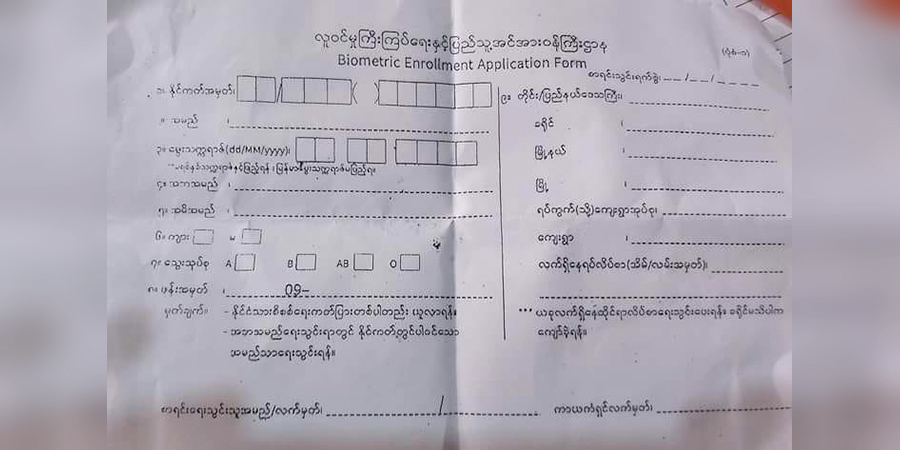 လူဝင်မှုကြီးကြပ်ရေးနှင့်ပြည်သူ့အင်အားဝန်ကြီးဌာန
Biometric Enrollment Application Form
(ပုံစံ-၁)
စာရင်းသွင်းရက်စွဲ၊ __ /__ /____
၁။ နိုင်ငံကတ်အမှတ်၊ / ( )
၂။ အမည် ၊
၃။ မွေးသက္ကရာဇ်(dd/MM/yyyy)၊
၄။ အဘအမည် ၊
၅။ အမိအမည် ၊
၆။ ကျား မ
၇။ သွေးအုပ်စု A B AB O
၈။ ဖုန်းအမှတ် ၊ 09-
မှတ်ချက်။ - နိုင်ငံသားစိစစ်ရေးကတ်ပြားတစ်ပါတည်း ယူလာရန်။
- အဘအမည်ရေးသွင်းရာတွင် နိုင်ငံကတ်တွင်ပါဝင်သော
အမည်သာရေးသွင်းရန်။
၉။ တိုင်း/ပြည်နယ်ဒေသကြီး၊
ခရိုင် ၊
မြို့နယ် ၊
မြို့ ၊
ရပ်ကွက်(သို့)ကျေးရွာအုပ်စု၊
ကျေးရွာ ၊
လက်ရှိနေရပ်လိပ်စာ(အိမ်/လမ်းအမှတ်)၊
*** ယခုလက်ရှိနေထိုင်ရာလိပ်စာရေးသွင်းပေးရန်။ ခရိုင်မသိပါက
ကျော်ခဲ့ရန်။
စာရင်းရေးသွင်းသူအမည်/လက်မှတ်၊ /
ကာယကံရှင်လက်မှတ်၊